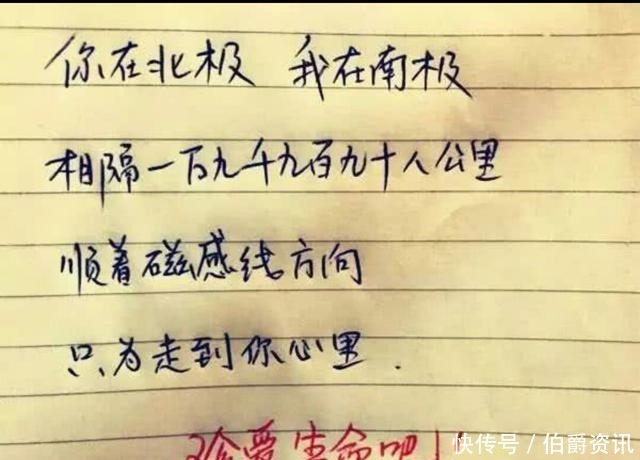 你在北极 我在南极
相隔一万九千九百九十八公里
顺着磁感线方向
只为走到你心里.
珍爱生命吧!
快传号／伯爵资讯